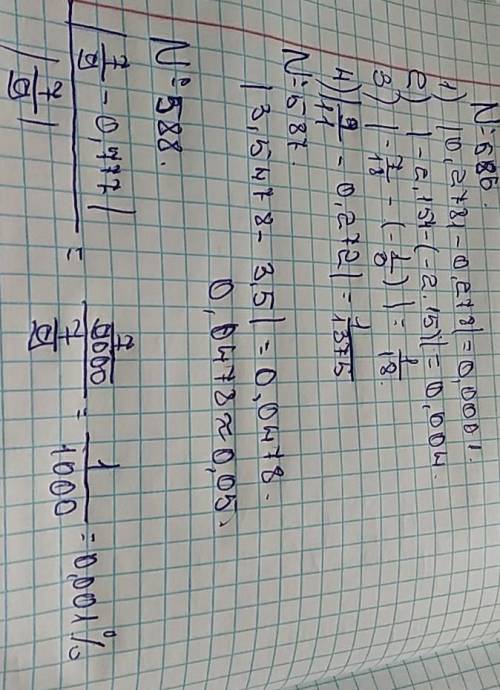 № 586.
1) |0,2781-0,278|=0,0001.
2) |-2,154-(-2.15)|=0,004.
3) |-7/18 - (-1/3)| = 1/18.
4) |3/11 - 0,272| = 1/1375
№ 587.
|3,5478-3,5|=0,0478.
0,0478≈0,05.
№ 588.
|7/9 - 0,777| / |7/9| = 7/9000 / 7/9 = 1/1000 = 0,001%